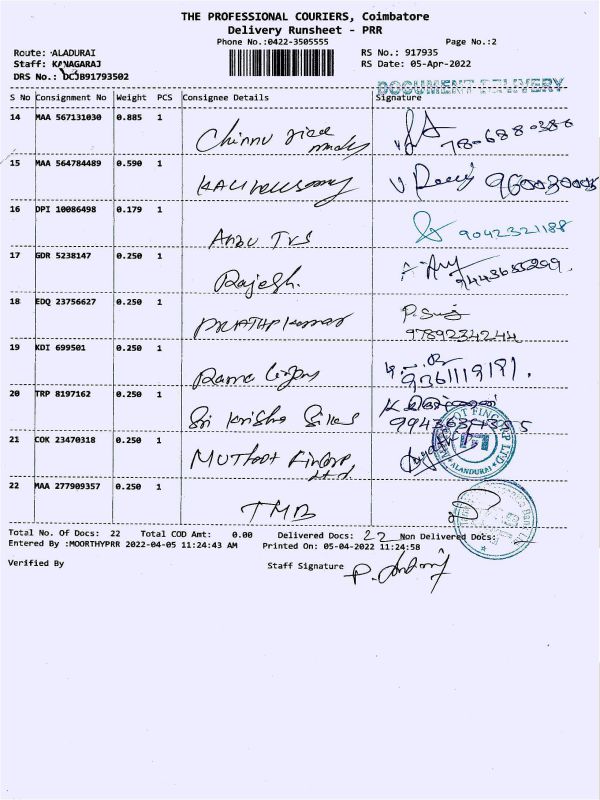 THE PROFESSIONAL COURIERS, Coimbatore
Delivery Runsheet - PRR
Phone No.:0422-3505555 Page No.:2
Route: ALADURAI RS No.: 917935
Staff: KANAGARAJ RS Date: 05-Apr-2022
DRS No.: DCJB91793502
DOCUMENT DELIVERY
S No Consignment No Weight PCS Consignee Details Signature
14 MAA 567131030 0.885 1 Chinnu
15 MAA 564784489 0.590 1
16 DPI 10086498 0.179 1 Anbu TVS 9042321188
17 GDR 5238147 0.250 1 Rajesh.
18 EDQ 23756627 0.250 1 Prathap Kumar 9789234244
19 KDI 699501 0.250 1 Rama 9361119191.
20 TRP 8197162 0.250 1 Sri Krishna Silks
21 COK 23470318 0.250 1 Muthoot Fincorp Ltd
ALANDURAI
22 MAA 277909357 0.250 1 TMB
Total No. Of Docs: 22 Total COD Amt: 0.00 Delivered Docs: 22 Non Delivered Docs:
Entered By :MOORTHYPRR 2022-04-05 11:24:43 AM Printed On: 05-04-2022 11:24:58
Verified By Staff Signature